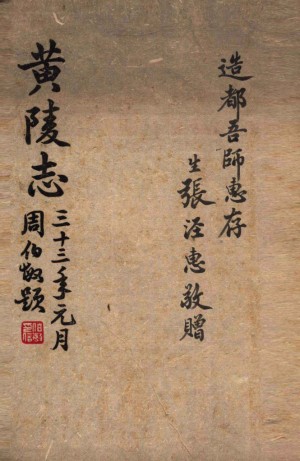 造都吾師惠存
生張淫惠敬贈
黄陵志
三十三年元月
周伯敏題